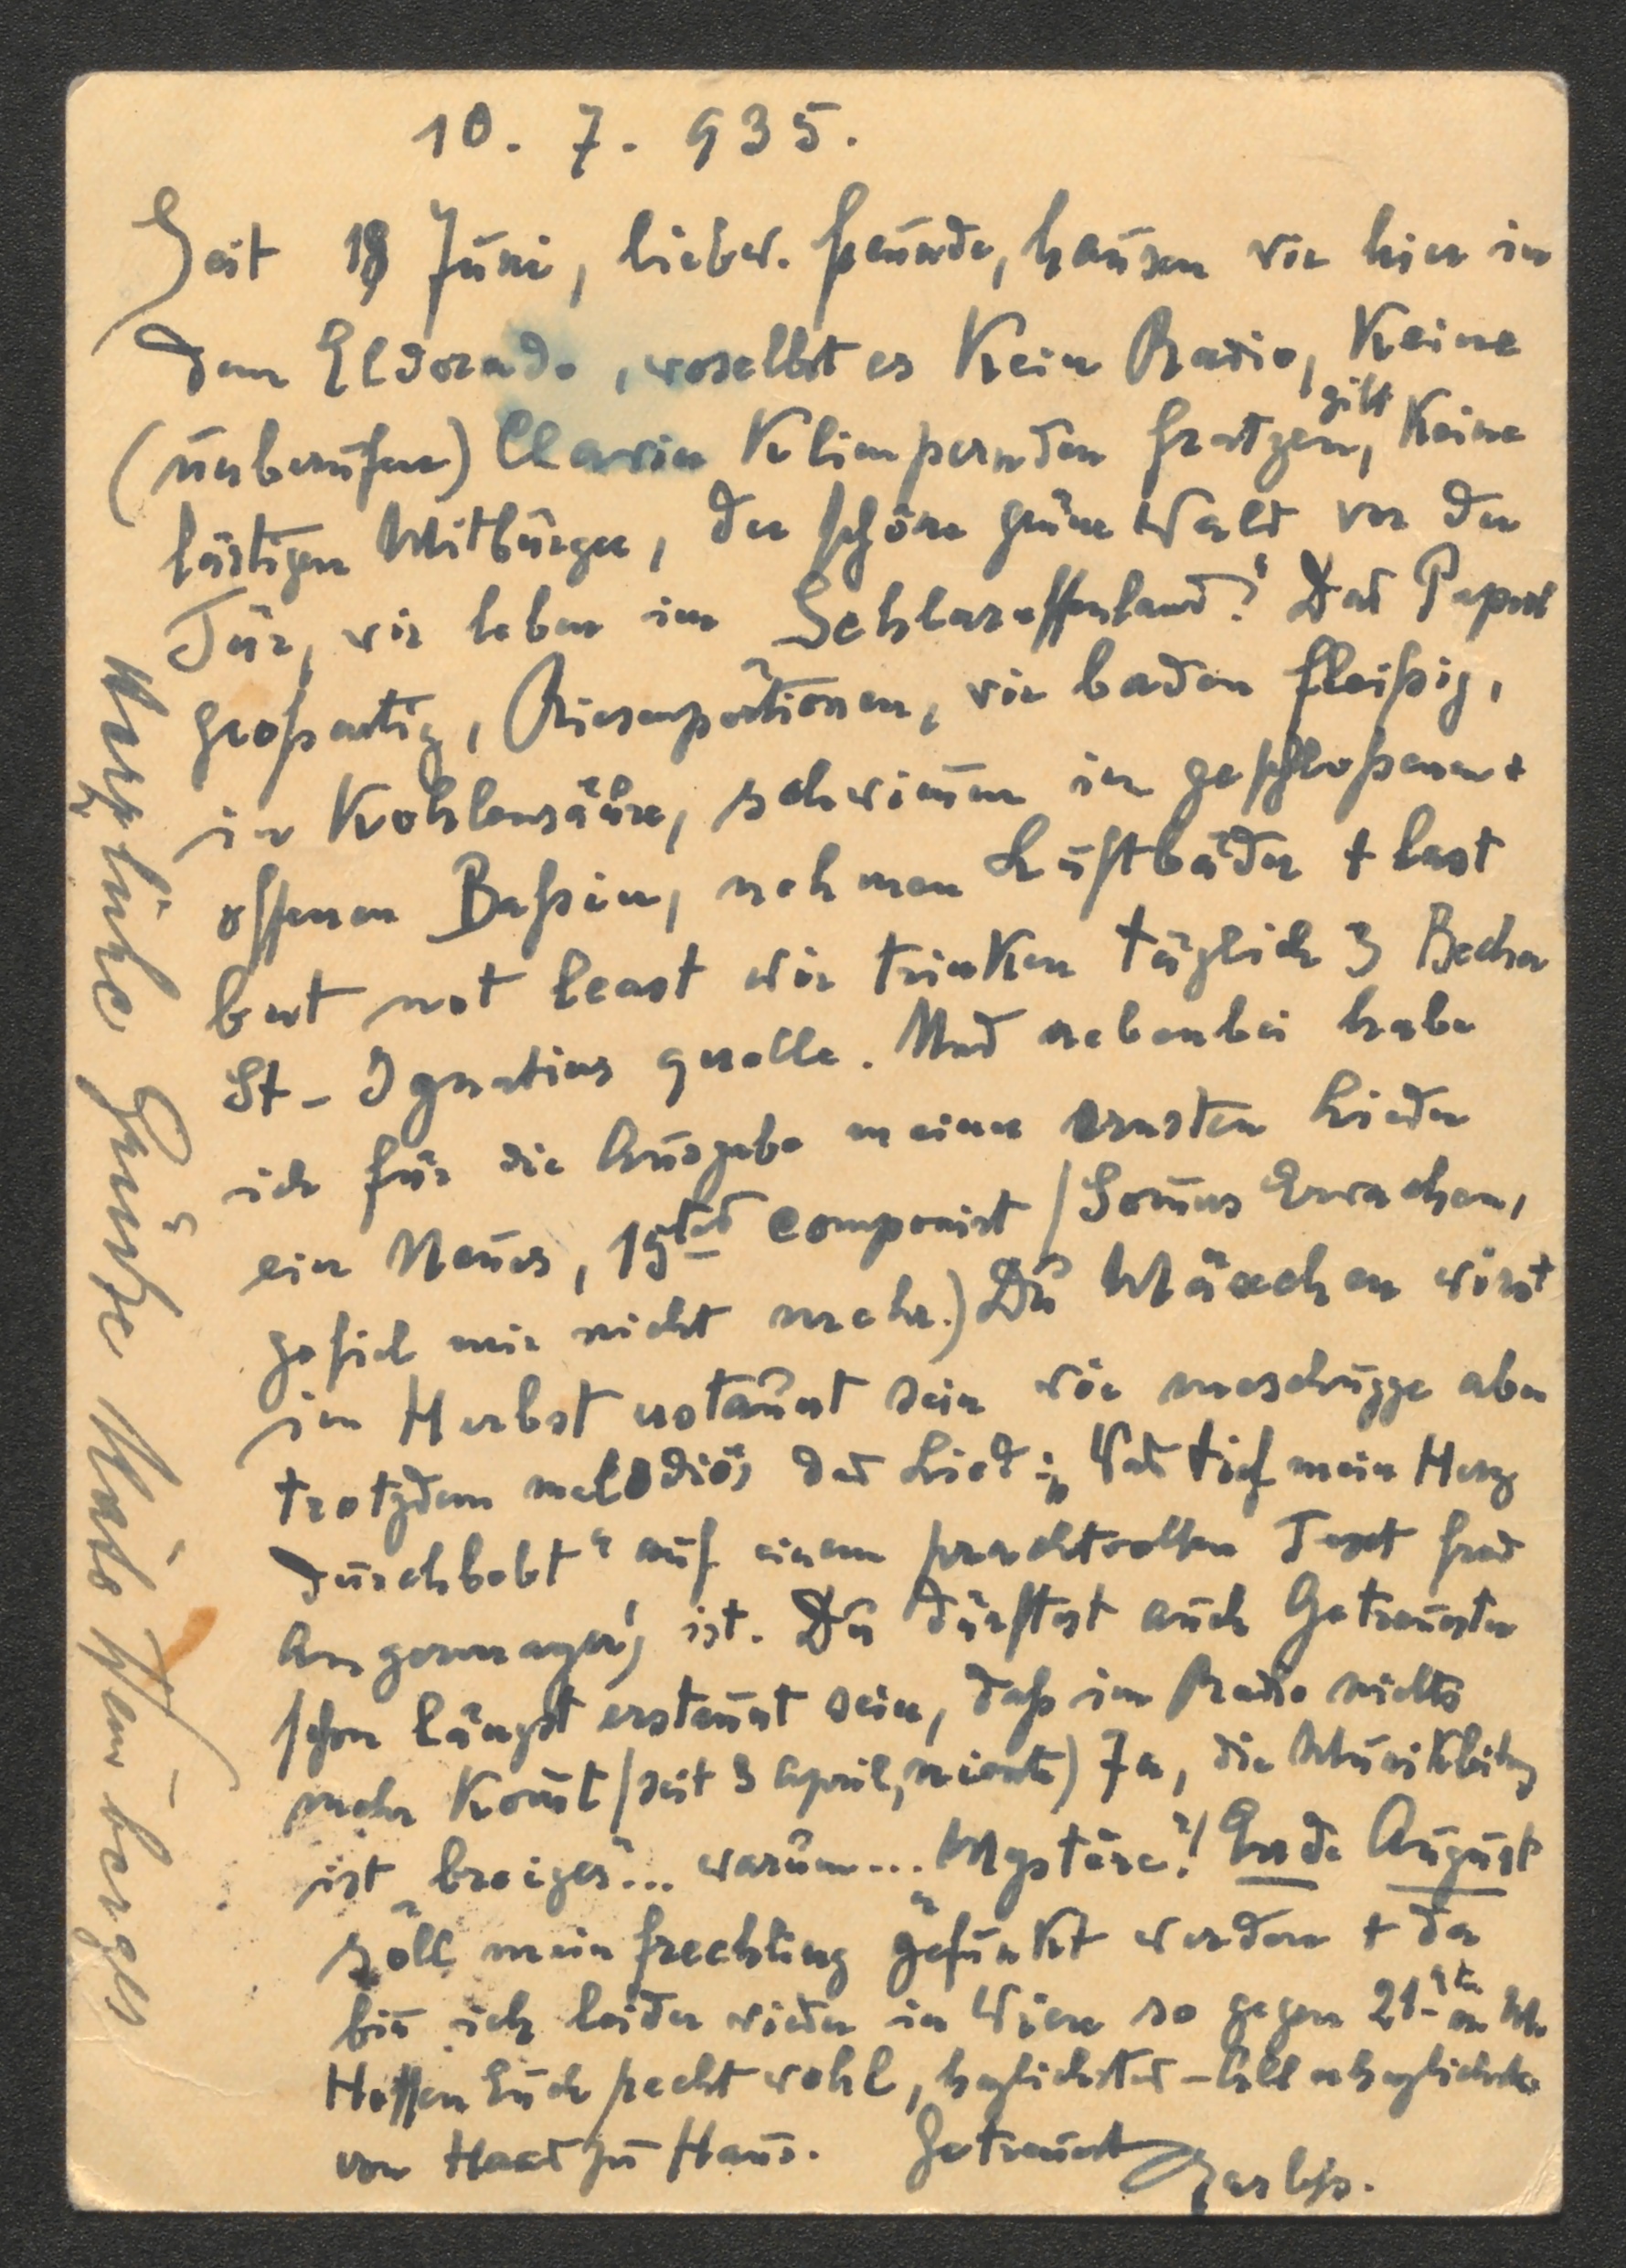 10. 7. 935.
Seit 18 Juni, liebw. Freunde, hausen wir hier in
dem Eldorado, woselbst es kein Radio, keine
(unberufen) Clavier klimpernden Fratzen, gibt keine
lästigen Mitbürger, der schöne grüne Wald vor der
Tür, wir leben im Schlaraffenland! Das Papperl
großartig, Riesenportionen, wir baden fleißig,
in Kohlensäure, schwim̅en in geschloßenen +
offenen Baßin, nehmen Luftbäder + last
but not least wir trinken täglich 3 Becher
St-Ignatius quelle. Und nebenbei habe
ich für die Ausgabe meiner ernsten Lieder
ein Neues, 15tes componiert / Som̅ers Erwachen,
gefiel mir nicht mehr.) Du Mäxchen wirst
im Herbst erstaunt sein wie meschugge aber
trotzdem melodiös das Lied: „Was tief mein Herz
durchbebt“ auf einem prachtvollen Text Fred
Angermayers, ist. Du dürftest auch Getreuster
schon längst erstaunt sein, daß im Radio nichts
mehr kom̅t / seit 3 April, niente) Ja, die Musikleitg
ist „broiges“... warum... Mystère! Ende August
soll mein Frechling gefunkt werden + da
bin̅ ich leider wieder in Wien so gegen 21-ten
Hoffen Euch recht wohl, herzlichstes – Allerherzlichstes
von Haus zu Haus. Getreuest
Herzliche Grüße